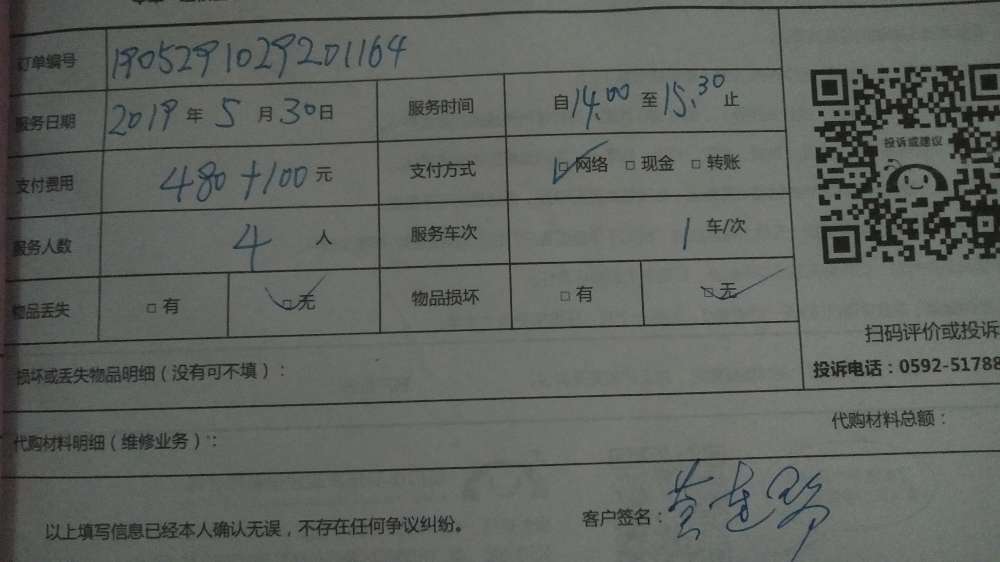 订单编号 1905291029201164
服务日期 2019 年 5 月 30 日 服务时间 自 14.00 至 15.30 止
支付费用 480+100 元 支付方式 □ 网络 □ 现金 □ 转账
服务人数 4 人 服务车次 1 车/次
物品丢失 □ 有 □ 无 物品损坏 □ 有 □ 无
投诉或建议
扫码评价或投诉
投诉电话：0592-51788
损坏或丢失物品明细（没有可不填）：
代购材料明细（维修业务）： 代购材料总额：
以上填写信息已经本人确认无误，不存在任何争议纠纷。 客户签名：